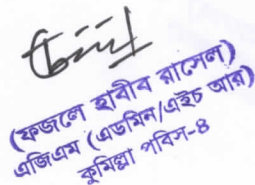 (ফজলে হাবীব রাসেল)
এজিএম (এডমিন/এইচ আর)
কুমিল্লা পবিস-৪